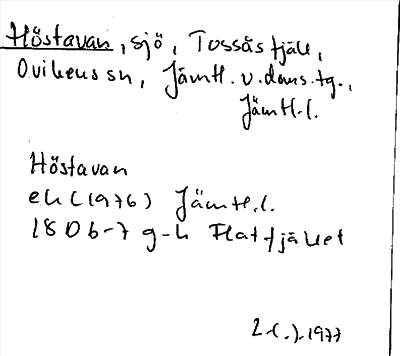 Höstavan, sjö, Tossåsfjäll,
Ovikens sn, Jämtl. v. doms.tg.,
Jämtl.l.
Höstavan
ek (1976) Jämtl.l.
18D 6-7 g-h Flatfjället
1977